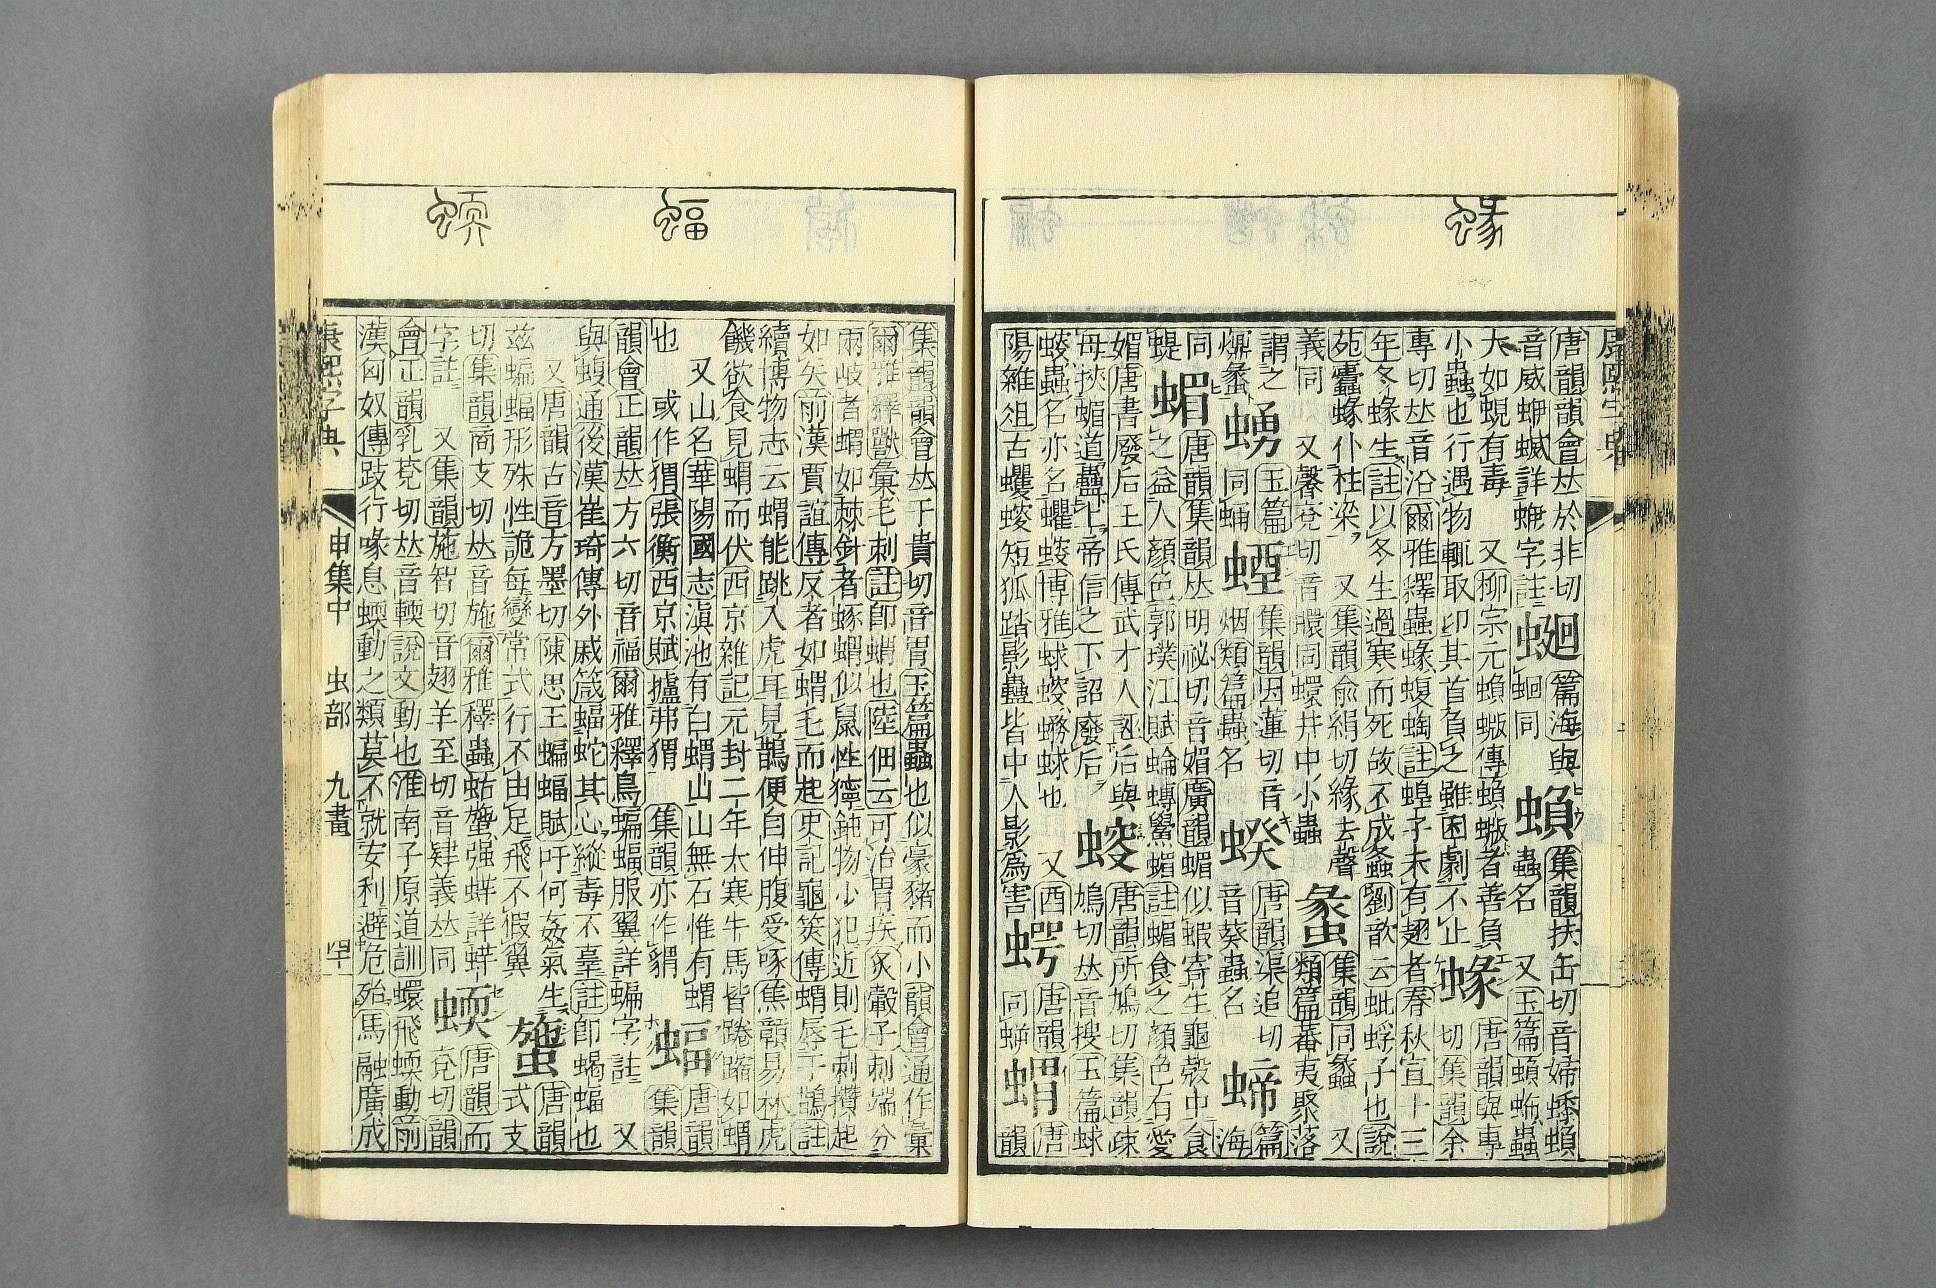 蝝
唐韻韻會𠀤於非切
音威蛜蝛詳蛜字註
篇海與
蛔同
蝜
集韻扶缶切音婦蟠蝜
蟲名 又玉篇蝜蚹蟲
大如蜆有毒 又柳宗元蝜蝂傳蝜蝂者善負
小蟲也行遇物輒取卬其首負之雖困劇不止
蝝
唐韻與專
切集韻余
專切𠀤音沿爾雅釋蟲蝝蝮蜪註蝗子未有翅者春秋宣十三
年冬蝝生註以冬生過寒而死故不成螽劉歆云蚍蜉子也說
苑蠹蝝仆柱梁 又集韻俞絹切緣去聲
義同 又馨兗切音臔同蠉井中小蟲
蟸
集韻同蠡 又
類篇蕃夷聚落
謂之
蠡
玉篇
同蛹
集韻因蓮切音
烟類篇蟲名
唐韻渠追切
音葵蟲名
篇
海
同
蝭
蝞
唐韻集韻𠀤明祕切音媚廣韻蝞似蝦寄生龜殼中食
之益人顏色郭璞江賦蜦䗚鱟蝞註蝞食之顏色有愛
媚唐書廢后王氏傳武才人誣后與
母挾蝞道蠱上帝信之下詔廢后
螋
唐韻所鳩切集韻疎
鳩切𠀤音搜玉篇蛷
螋蟲名亦名蠷螋博雅蛷螋蟧蛷也 又酉
陽雜俎古蠼螋短狐踏影蠱皆中人影爲害
唐韻
同
蝟
唐
韻
蝠
蝡
集韻韻會𠀤于貴切音胃玉篇蟲也似豪豬而小韻會通作彙
爾雅釋獸彙毛刺註卽蝟也陸佃云可治胃疾炙轂子刺端分
兩岐者蝟如棘針者䖘蝟似鼠性獰鈍物少犯近則毛刺攢起
如矢前漢賈誼傳反者如蝟毛而起史記龜筴傳蝟辱于鵲註
續博物志云蝟能跳入虎耳見鵲便自仰腹受啄焦贛易林虎
饑欲食見蝟而伏西京雜記元封二年大寒牛馬皆蜷蹜如蝟
又山名華陽國志滇池有白蝟山山無石惟有蝟
也 或作猬張衡西京賦狒猬 集韻亦作
蝠
唐韻
集韻
韻會正韻𠀤方六切音福爾雅釋鳥蝙蝠服翼詳蝙字註 又
與蝮通後漢崔琦傳外戚箴蝠蛇其心縱毒不辜註卽蝎蝠也
又唐韻古音方墨切陳思王蝙蝠賦吁何姦氣生
兹蝙蝠形殊性詭每變常式行不由足飛不假翼
䗐
唐韻
式支
切集韻商支切𠀤音施爾雅釋蟲蛄䗐强蛘詳蛘
字註 又集韻施智切音翅羊至切音肄義𠀤同
蝡
唐韻而
兗切韻
會正韻乳兗切𠀤音輭說文動也淮南子原道訓蠉飛蝡動前
漢匈奴傳跂行喙息蝡動之類莫不就安利避危殆馬融廣成
康熙字典 申集中 虫部 九畫